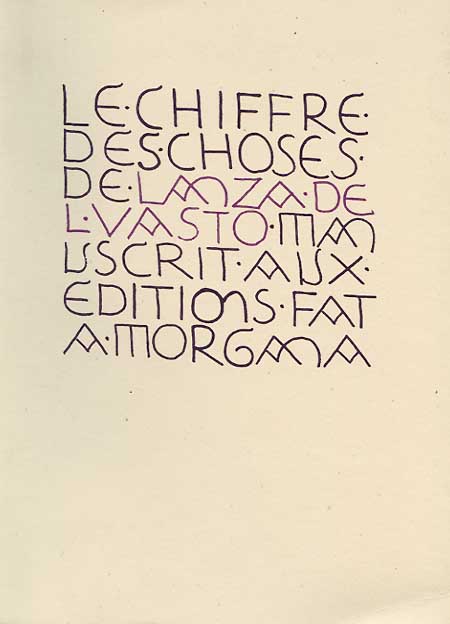 LE·CHIFFRE·
DES·CHOSES·
DE·LANZA·DE
L·VASTO·MAN
USCRIT·AUX·
EDITIONS·FAT
A·MORGANA